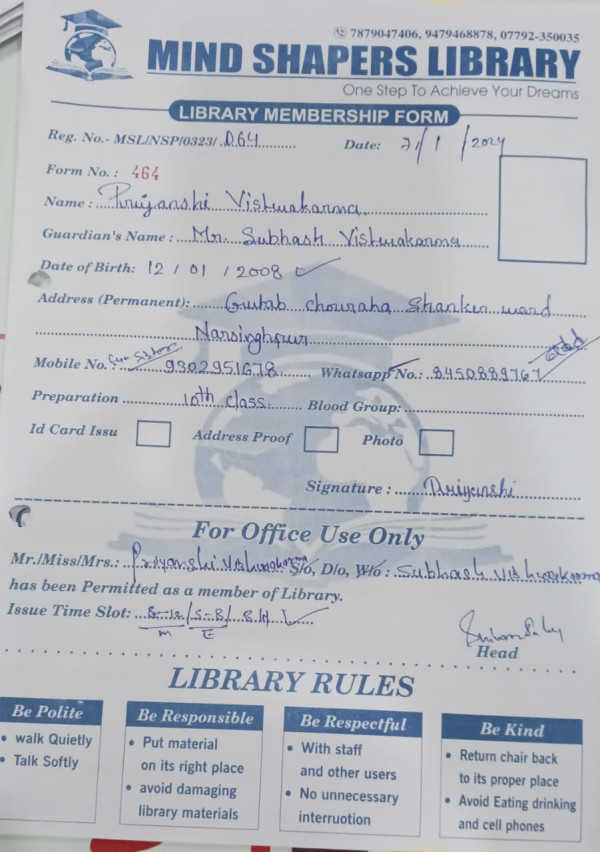 7879047406, 9479468878, 07792-350035
MIND SHAPERS LIBRARY
One Step To Achieve Your Dreams
LIBRARY MEMBERSHIP FORM
Reg. No.- MSL/NSP/0323/ 064 Date: 7/1/2024
Form No. : 464
Name : Priyanshi Vishwakarma
Guardian's Name : Mr. Subhash Vishwakarma
Date of Birth: 12 / 01 / 2008
Address (Permanent): Gulab chouraha Shanker ward
Narsinghpur
Mobile No. : Sister 9302951678 Whatsapp No.: 8450889767
Preparation 10th class Blood Group:
Id Card Issu Address Proof Photo
Signature : Priyanshi
For Office Use Only
Mr./Miss/Mrs.: Priyanshi Vishwakarma S/o, D/o, W/o : Subhash Vishwakarma
has been Permitted as a member of Library.
Issue Time Slot: 8-12/5-8/
M E
Head
LIBRARY RULES
Be Polite
• walk Quietly
• Talk Softly
Be Responsible
• Put material
on its right place
• avoid damaging
library materials
Be Respectful
• With staff
and other users
• No unnecessary
interruotion
Be Kind
• Return chair back
to its proper place
• Avoid Eating drinking
and cell phones